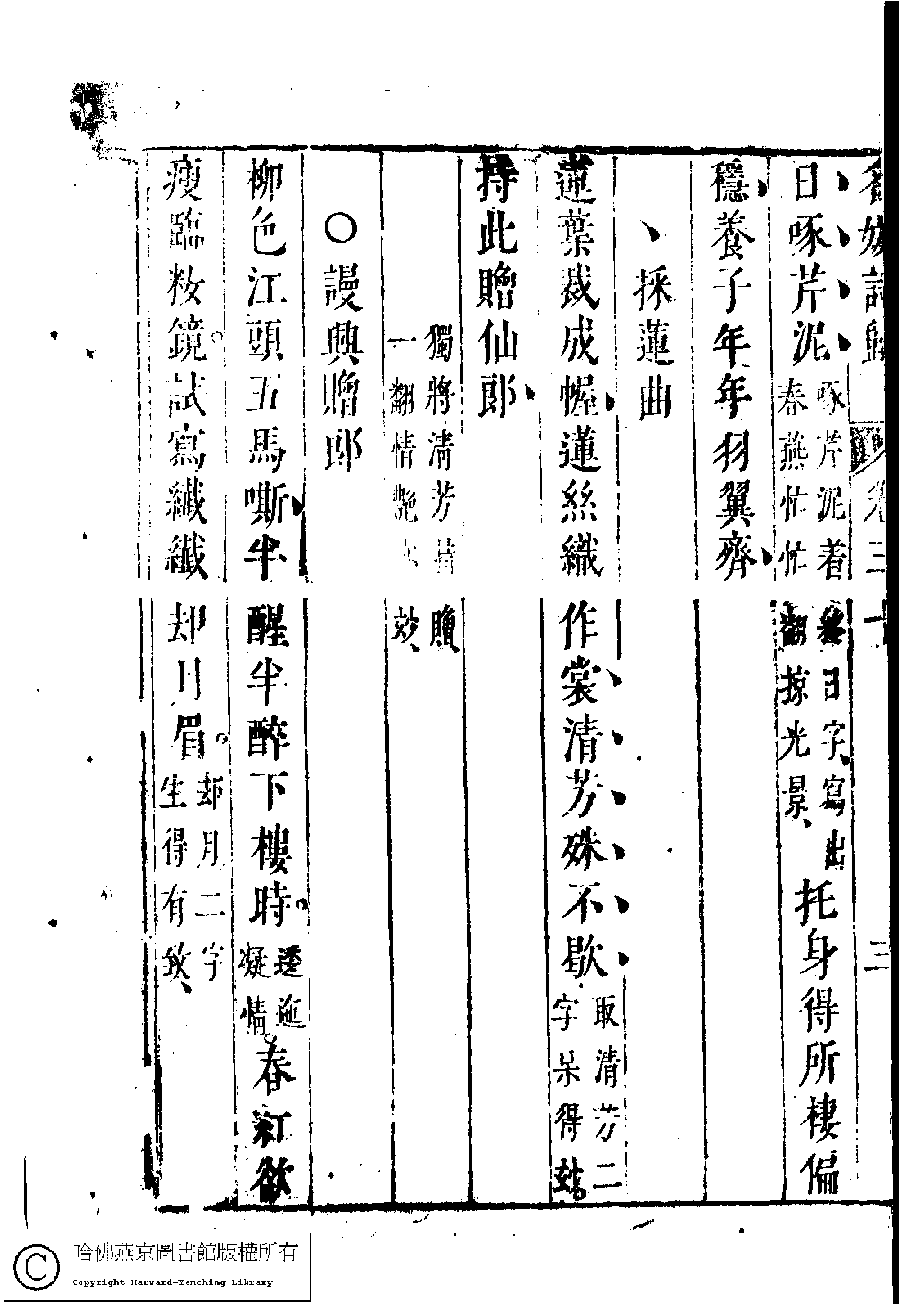 名媛詩歸 卷三十 三
日啄芹泥
啄芹泥着幾日字、寫出
春燕忙忙翻掠光景、
托身得所棲偏
穩養子年年羽翼齊
採蓮曲
蓮葉裁成幄蓮絲織作裳清芳殊不歇
取清芳二
字呆得
持此贈仙郎
獨將清芳持贈、
一翻情艷致、
○謾興贈邸
柳色江頭五馬嘶半醒半醉下樓時。
逶迤
凝情
春紅欲
瘦臨妝鏡。試寫纖纖却月眉。
却月二字
生得有致、
哈佛燕京圖書館版權所有
Copyright Harvard-Yenching Library